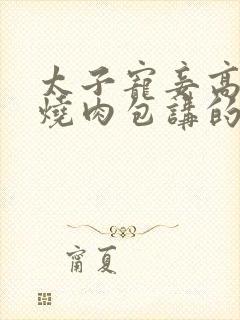 太子寵妾高
燒肉包講的
甯夏